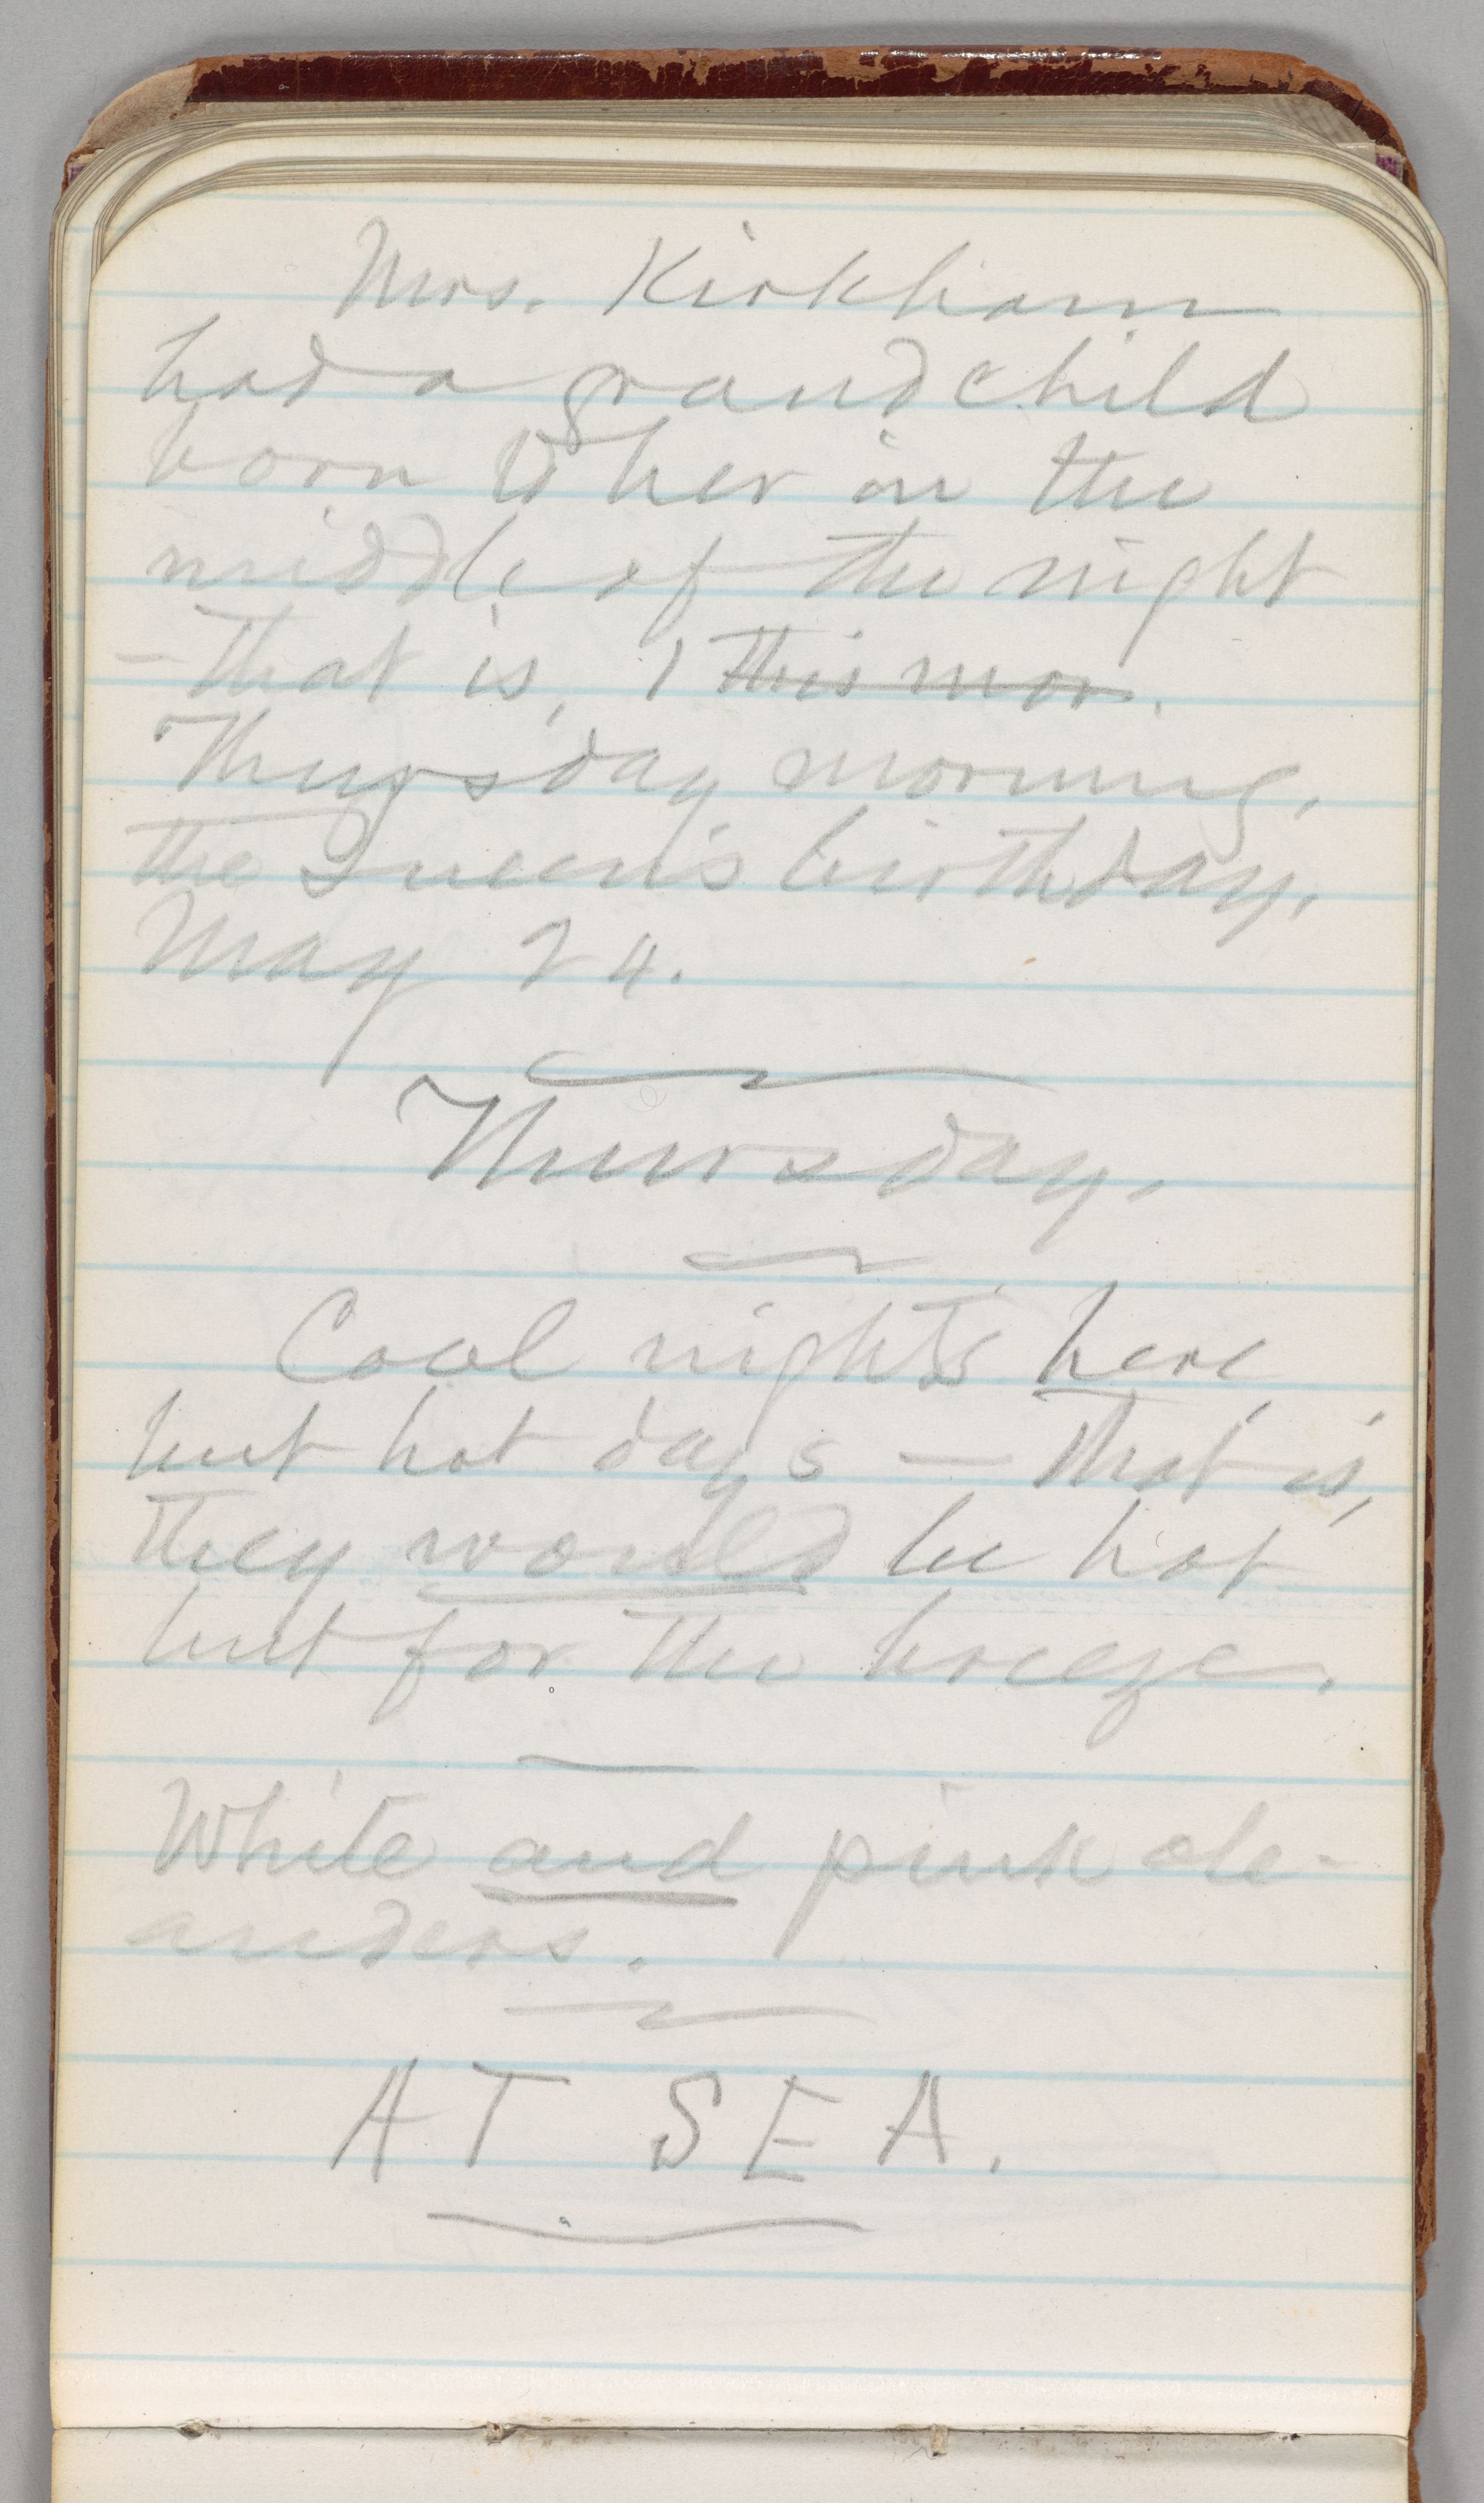 Mrs. Kirkham
had a grandchild
born to her in the
middle of the night
—that is, 1 this mor.
Thursday morning,
the Queen's birthday,
May 24.
Thursday.
Cool nights here,
but hot days — that is,
they would be hot
but for the breeze.
White and pink ole-
anders.
AT SEA.